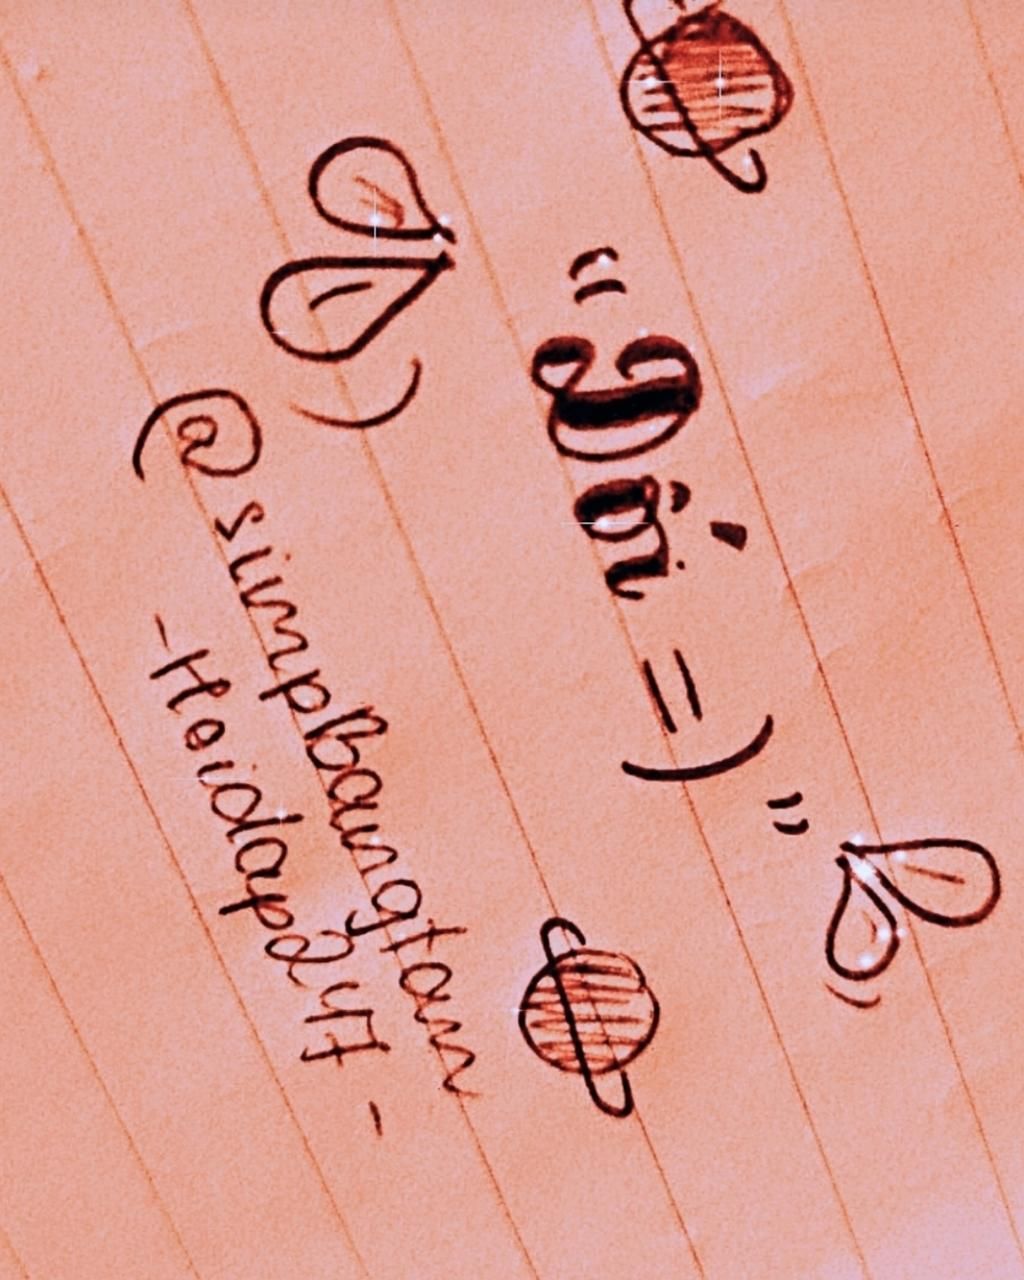 "Dối =)"
@simpBangtan
-Hoidap247-